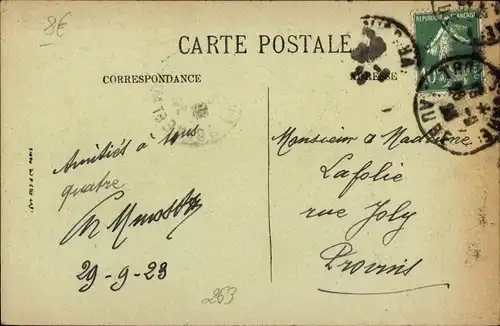 8€
CARTE POSTALE
CORRESPONDANCE
ADRESSE
REPUBLIQUE FRANÇAISE
Amitiés à tous
quatre
29-9-23
263
Monsieur & Madame
Lafolie
rue Joly
Provins